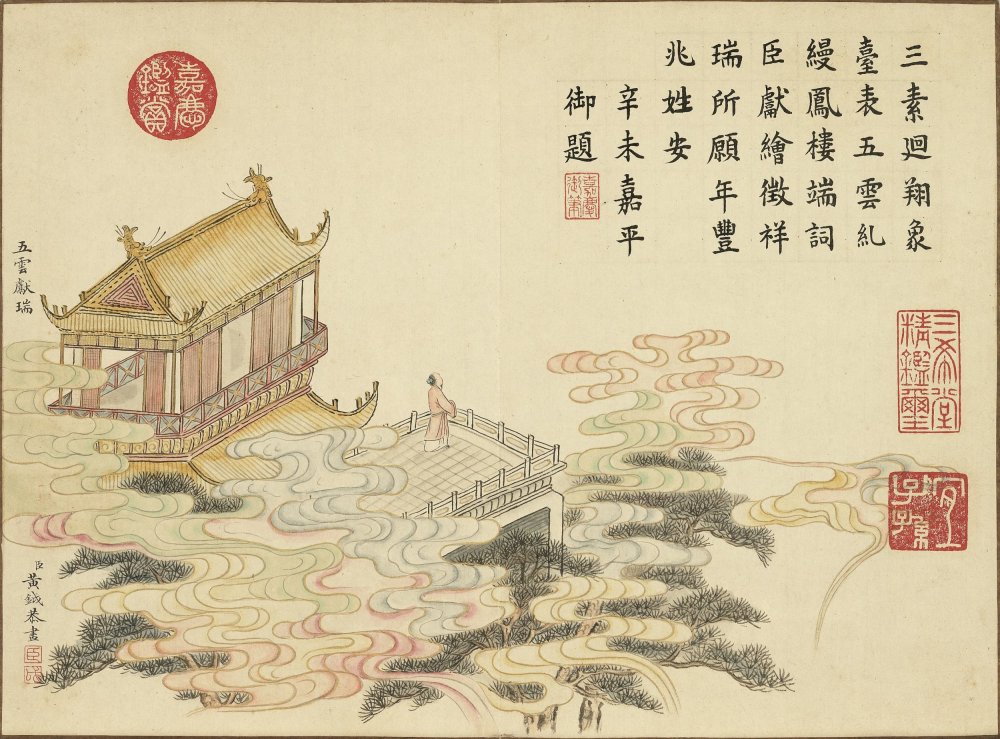 三素迴翔象
臺表五雲糺
縵鳳樓端詞
臣獻繪徵祥
瑞所願年豐
兆姓安
辛未嘉平
御題
嘉慶
御筆
嘉慶
鑑賞
五雲獻瑞
臣黃鉞恭畫
臣鉞
三希堂
精鑑璽
宜
子孫